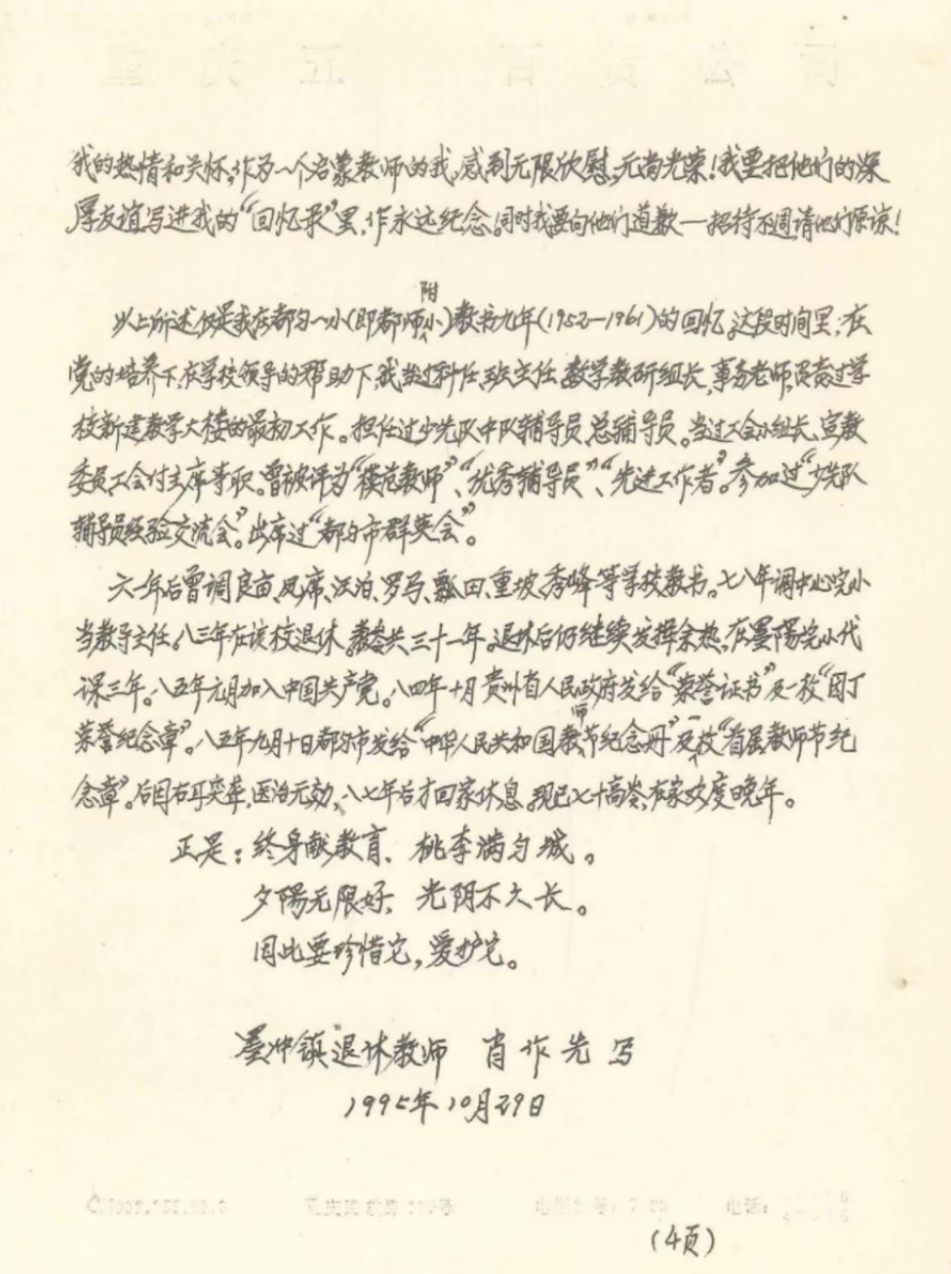 我的热情和关怀,作为一个启蒙教师的我,感到无限欣慰,无尚光荣!我要把他们的深
厚友谊写进我的“回忆录”里,作永远纪念。同时我要向他们道歉——招待不週请他们原谅!
以上所述仅是我在都匀一小(即都师附小)教书九年(1952—1961)的回忆。这段时间里,在
党的培养下,在学校领导的帮助下,我当过科任、班主任、数学教研组长、事务老师,负责过学
校新建教学大楼的最初工作。担任过少先队中队辅导员、总辅导员。当过工会小组长、宣教
委员、工会付主席等职。曾被评为“模范教师”、“优秀辅导员”、“先进工作者”。参加过“少先队
辅导员经验交流会”。出席过“都匀市群英会”。
六一年后曾调良亩、凤席、江泊、罗马、瓢田、重坡、秀峰等学校教书。七八年调中心完小
当教导主任。八三年在该校退休。教令共三十一年。退休后仍继续发挥余热,在墨陽完小代
课三年。八五年元月加入中国共产党。八四年十月贵州省人民政府发给“荣誉证书”及一枚“园丁
荣誉纪念章”。八五年九月十日都匀市发给“中华人民共和国教师节纪念册”及一枚“首届教师节纪
念章”。后因右耳突聋,医治无効,八七年后才回家休息。现已七十高令,在家欢度晚年。
正是:终身献教育、桃李满匀城。
夕陽无限好、光阴不久长。
因此要珍惜它,爱护它。
墨冲镇退休教师 肖作先 写
1995年10月29日
(4页)